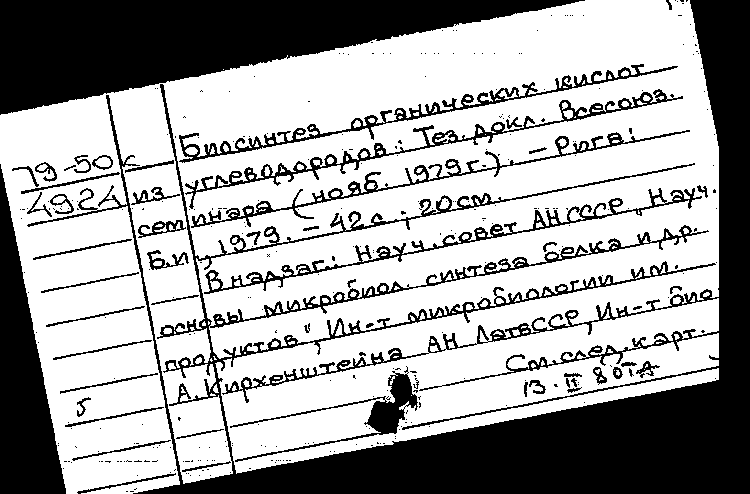 Биосинтез органических кислот
79-50к из углеводородов: Тез. докл. Всесоюз.
4924 семинара (нояб. 1979г.). - Рига:
Б.и., 1979. - 42с ; 20см.
В надзаг.: Науч. совет АН СССР "Науч.
основы микробиол. синтеза белка и др.
продуктов", Ин-т микробиологии им.
А. Кирхенштейна АН ЛатвССР, Ин-т био
5 См. след. карт.
13. II 80